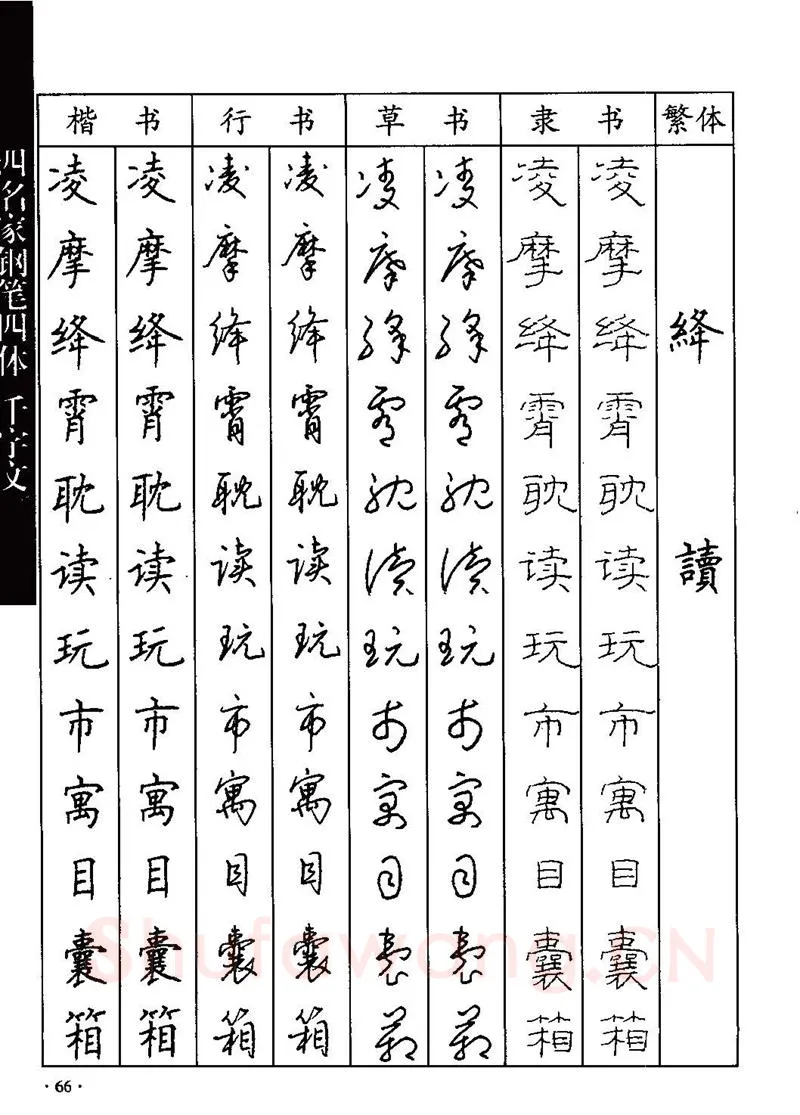 四名家钢笔四体 千字文
楷 书 行 书 草 书 隶 书 繁体
凌 凌 凌 凌 凌 凌 凌 凌
摩 摩 摩 摩 摩 摩 摩 摩
绛 绛 绛 绛 绛 绛 绛 绛 絳
霄 霄 霄 霄 霄 霄 霄 霄
耽 耽 耽 耽 耽 耽 耽 耽
读 读 读 读 读 读 读 读 讀
玩 玩 玩 玩 玩 玩 玩 玩
市 市 市 市 市 市 市 市
寓 寓 寓 寓 寓 寓 寓 寓
目 目 目 目 目 目 目 目
囊 囊 囊 囊 囊 囊 囊 囊
箱 箱 箱 箱 箱 箱 箱 箱
Shufawang.CN
·66·